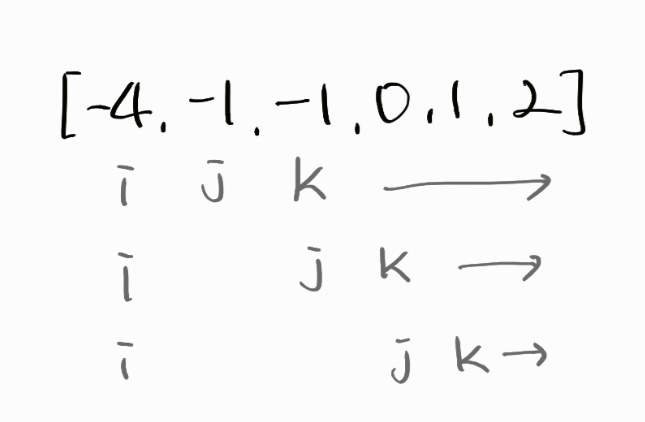 [-4, -1, -1, 0, 1, 2]
i j k →
i j k →
i j k →